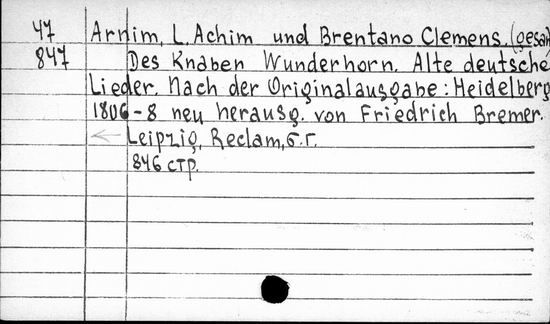 47 Arnim, L. Achim und Brentano Clemens. (gesam
847 Des Knaben Wunderhorn. Alte deutsche
Lieder. Nach der Originalausgabe: Heidelberg
1806-8 neu herausg. von Friedrich Bremer.
Leipzig, Reclam, б.г.
846 стр.